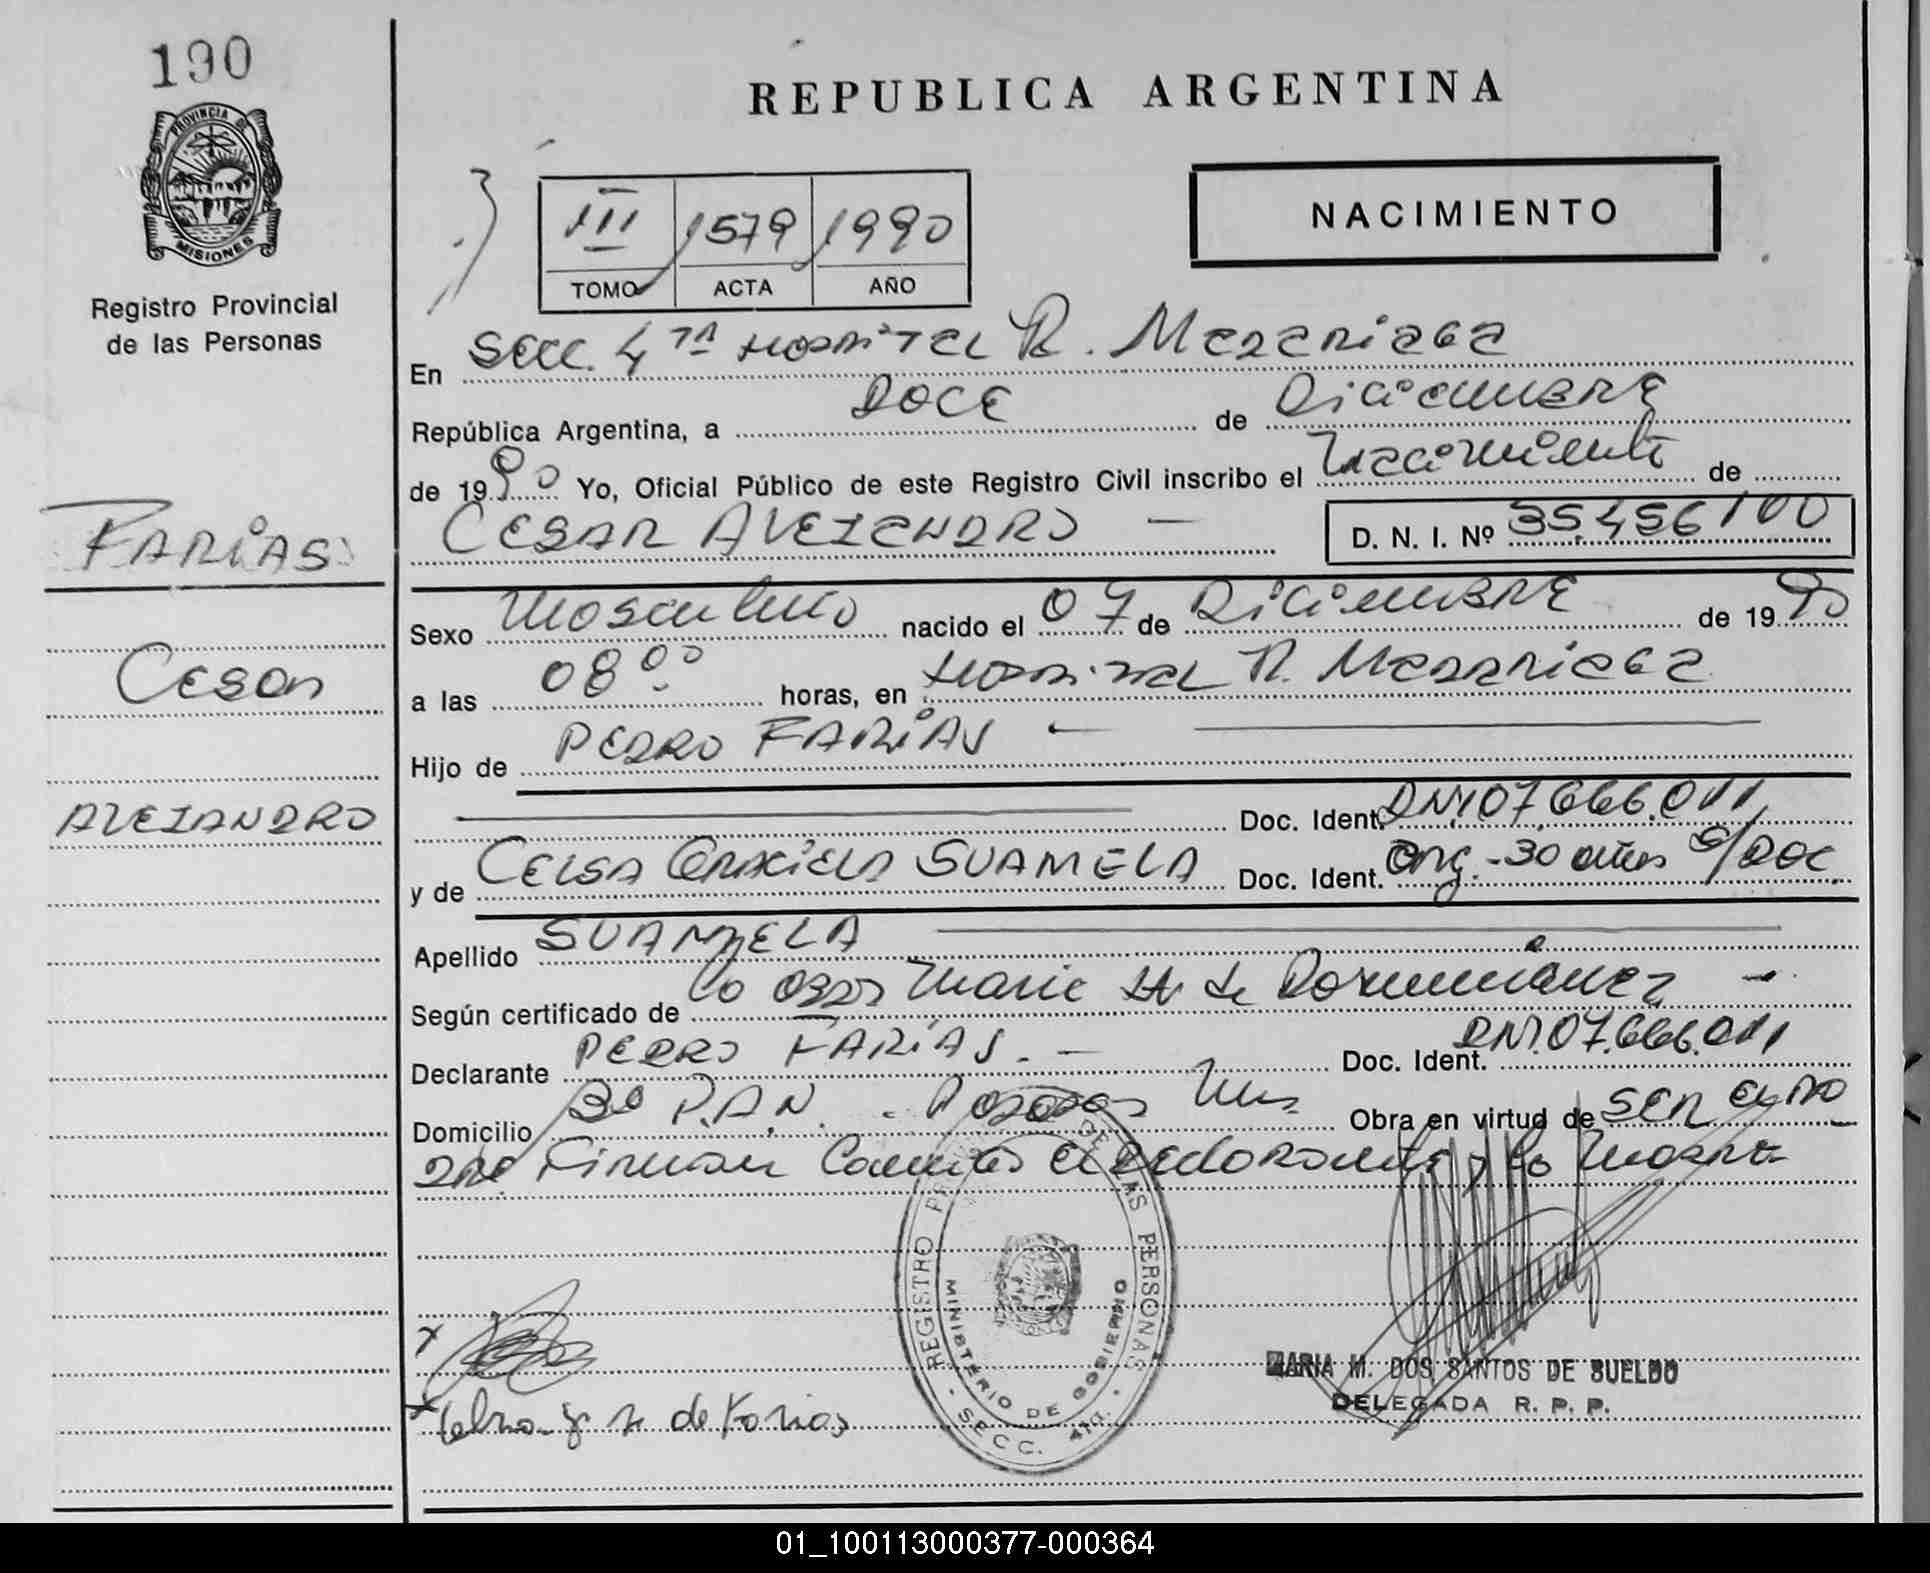 190
PROVINCIA DE
MISIONES
Registro Provincial
de las Personas
FARÍAS
Cesar
ALEJANDRO
REPUBLICA ARGENTINA
III 1579 1990
TOMO ACTA AÑO
NACIMIENTO
En Secc. 4TA Hospital R. Madariaga
República Argentina, a DOCE de Diciembre
de 1990 Yo, Oficial Público de este Registro Civil inscribo el Nacimiento de
CESAR ALEJANDRO — D. N. I. Nº 35.456100
Sexo Masculino nacido el 07 de Diciembre de 1990
a las 08 00 horas, en Hospital R. Madariaga
Hijo de PEDRO FARÍAS —
Doc. Ident. DNI 07.666.011
y de CELSA Graciela SUAMELA Doc. Ident. Arg. - 30 años S/DOC.
Apellido SUAMELA
Según certificado de la Maria de
Declarante PEDRO FARÍAS. — Doc. Ident. DNI 07.666.011
Domicilio Bº P.A.N. Posadas Mns Obra en virtud de SER
Firman el declarante y la Madre
REGISTRO DE LAS PERSONAS
MINISTERIO DE GOBIERNO
- SECC. 4TA. -
x
x de Farias
MARIA M. DOS SANTOS DE SUELDO
DELEGADA R. P. P.
01_100113000377-000364